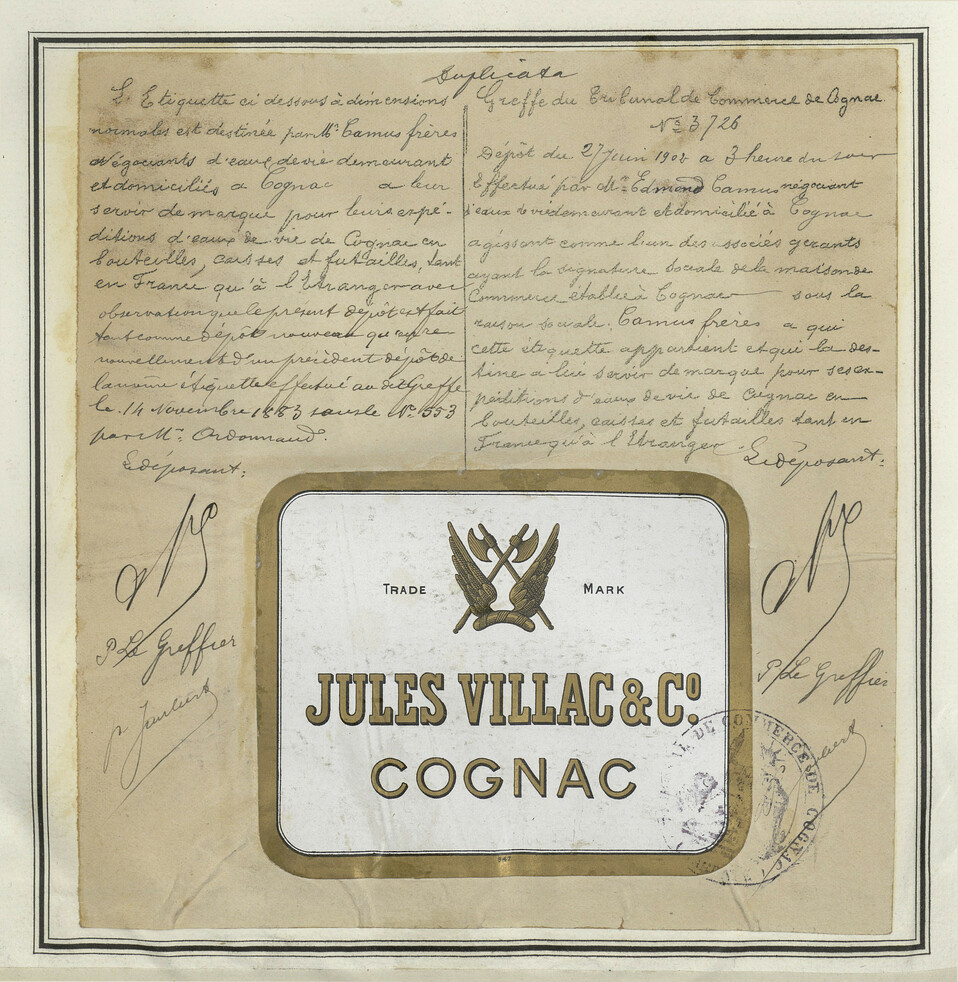 Duplicata
L'Etiquette ci dessous à dimensions
normales est destinée par Mrs Camus frères
Négociants d'eaux de vie demeurant
et domiciliés à Cognac à leur
servir de marque pour leurs expé-
ditions d'eaux de vie de Cognac en
bouteilles, caisses et futailles, tant
en France qu'à l'Etranger avec
observation que le présent dépôt est fait
tant comme dépôt nouveau qu'en re-
nouvellement d'un précédent dépôt de
la même étiquette effectué au dit Greffe
le 14 Novembre 1883 sous le No 553
par Mr Ordonnaud.
Le déposant:
P Le Greffier
Greffe du Tribunal de Commerce de Cognac
No 3726
Dépôt du 27 Juin 1902 à 3 heure du soir
Effectué par Mr Edmond Camus négociant
d'eaux de vie demeurant et domicilié à Cognac
agissant comme l'un des associés gérants
ayant la signature sociale de la maison de
Commerce établie à Cognac sous la
raison sociale: Camus frères à qui
cette étiquette appartient et qui la des-
tine à lui servir de marque pour ses ex-
péditions d'eaux de vie de Cognac en
bouteilles, caisses et futailles tant en
France qu'à l'Etranger
Le déposant:
P/ Le Greffier
TRADE MARK
JULES VILLAC & Co.
COGNAC
947
DE COMMERCE DE COGNAC